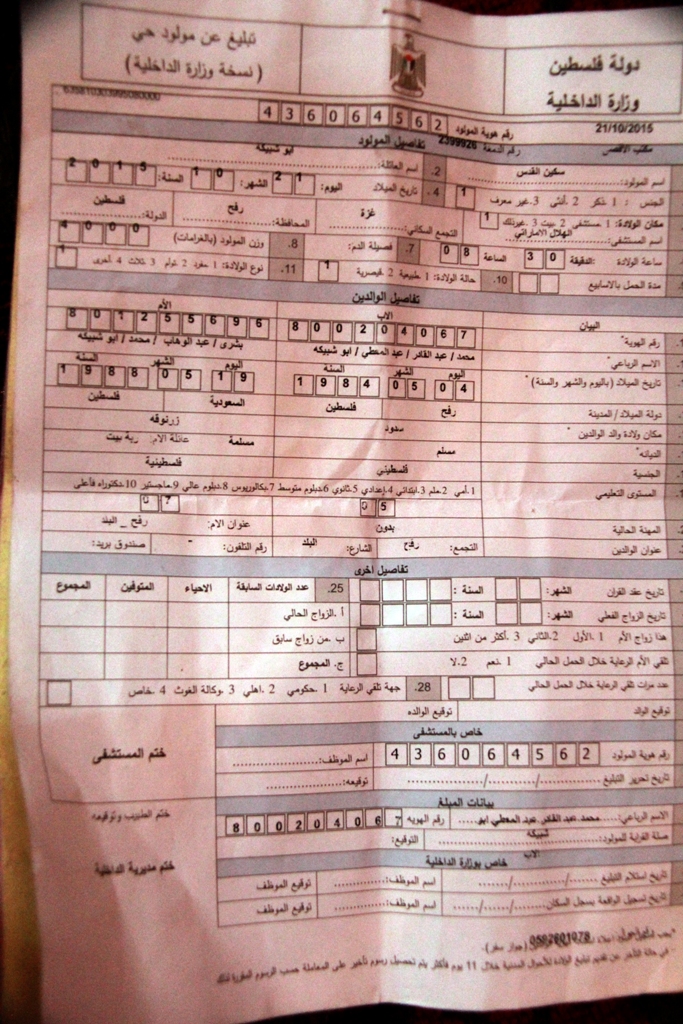 دولة فلسطين
وزارة الداخلية
تبليغ عن مولود حي
(نسخة وزارة الداخلية)
21/10/2015
رقم هوية المولود 436064562
مكتب الاقصى رقم الدمغة 2399926 تفاصيل المولود
اسم المولود: سكين القدس 2. اسم العائلة: ابو شبيكة
الجنس : 1. ذكر 2. أنثى 3. غير معرف 1 4. تاريخ الميلاد اليوم: 21 الشهر: 10 السنة: 2015
مكان الولادة: 1. مستشفى 2. بيت 3. غير ذلك 1
اسم المستشفى: الهلال الاماراتي التجمع السكاني: غزة المحافظة: رفح الدولة: فلسطين
ساعة الولادة : الدقيقة 30 الساعة 08 7. فصيلة الدم: 8. وزن المولود (بالغرامات) 4000
مدة الحمل بالاسابيع 10. حالة الولادة: 1. طبيعية 2. قيصرية 1 11. نوع الولادة: 1. مفرد 2. توأم 3. ثلاث 4. أخرى 1
تفاصيل الوالدين
البيان الاب الأم
رقم الهوية 800204067 801255696
الاسم الرباعي محمد / عبد القادر / عبد المعطي / ابو شبيكه بشرى / عبد الوهاب / محمد / ابو شبيكه
تاريخ الميلاد (باليوم والشهر والسنة) اليوم 04 الشهر 05 السنة 1984 اليوم 19 الشهر 05 السنة 1988
دولة الميلاد / المدينة رفح فلسطين السعودية فلسطين
مكان ولادة والد الوالدين سدود زرنوقه
الديانه مسلم مسلمة عائلة الام:
الجنسية فلسطيني فلسطينية
المستوى التعليمي 1. أمي 2. ملم 3. ابتدائي 4. إعدادي 5. ثانوي 6. دبلوم متوسط 7. بكالوريوس 8. دبلوم عالي 9. ماجستير 10. دكتوراه فأعلى
05 07
المهنة الحالية بدون ربة بيت
عنوان الوالدين التجمع: رفح الشارع: البلد عنوان الام: رفح _ البلد
رقم التلفون: - صندوق بريد:
تفاصيل اخرى
تاريخ عقد القران الشهر: السنة : 25. عدد الولادات السابقة الاحياء المتوفين المجموع
تاريخ الزواج الفعلي الشهر: السنة : أ. الزواج الحالي
هذا زواج الأم 1. الأول 2. الثاني 3. أكثر من اثنين ب. من زواج سابق
تلقي الأم الرعاية خلال الحمل الحالي 1. نعم 2. لا ج. المجموع
عدد مرات تلقي الرعاية خلال الحمل الحالي 28. جهة تلقي الرعاية 1. حكومي 2. اهلي 3. وكالة الغوث 4. خاص
توقيع الوالد توقيع الوالده
خاص بالمستشفى
رقم هوية المولود 436064562 اسم الموظف:
تاريخ تحرير التبليغ ...../...../..... توقيعه:
ختم المستشفى
بيانات المبلغ
الاسم الرباعي: محمد عبد القادر عبد المعطي ابو شبيكه رقم الهويه 800204067
صلة القرابة للمولود: الاب التوقيع:
ختم الطبيب وتوقيعه
خاص بوزارة الداخلية
تاريخ استلام التبليغ ...../...../..... اسم الموظف: توقيع الموظف
تاريخ تسجيل الواقعة بسجل السكان ...../...../..... اسم الموظف: توقيع الموظف
ختم مديرية الداخلية
(جواز سفر).
- في حالة التأخر عن تقديم تبليغ الولادة للأحوال المدنية خلال 11 يوم فأكثر يتم تحصيل رسوم تأخير على المعاملة حسب الرسوم المقررة لذلك